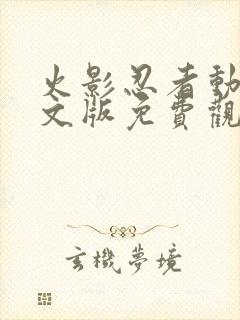 火影忍者動
文版免費觀
玄機夢境